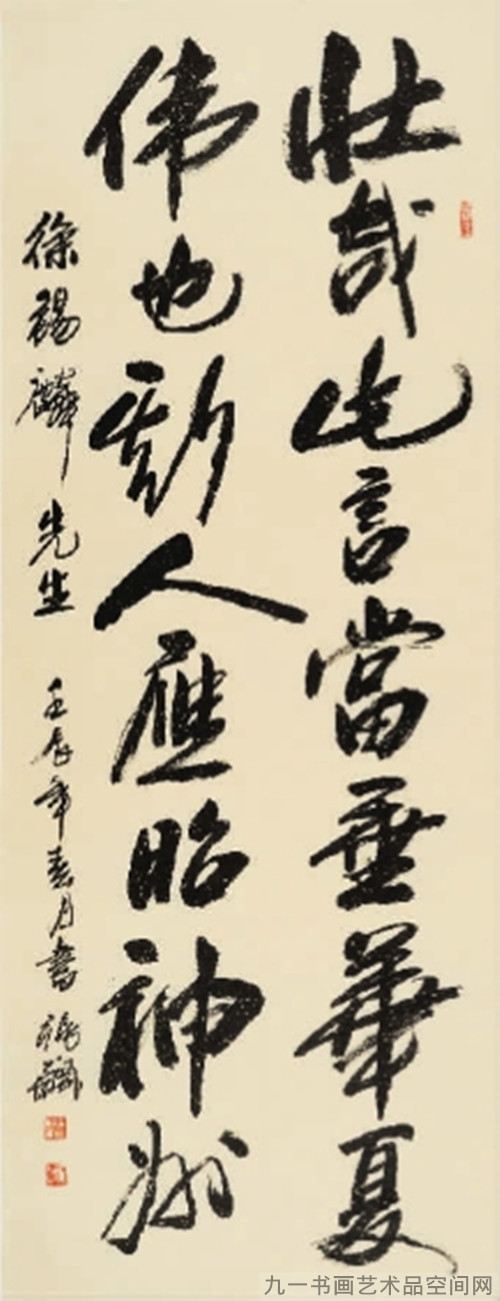 壮哉此言當垂華夏
伟也斯人應昭神州
徐锡麟先生 壬辰年春月書
九一书画艺术品空间网